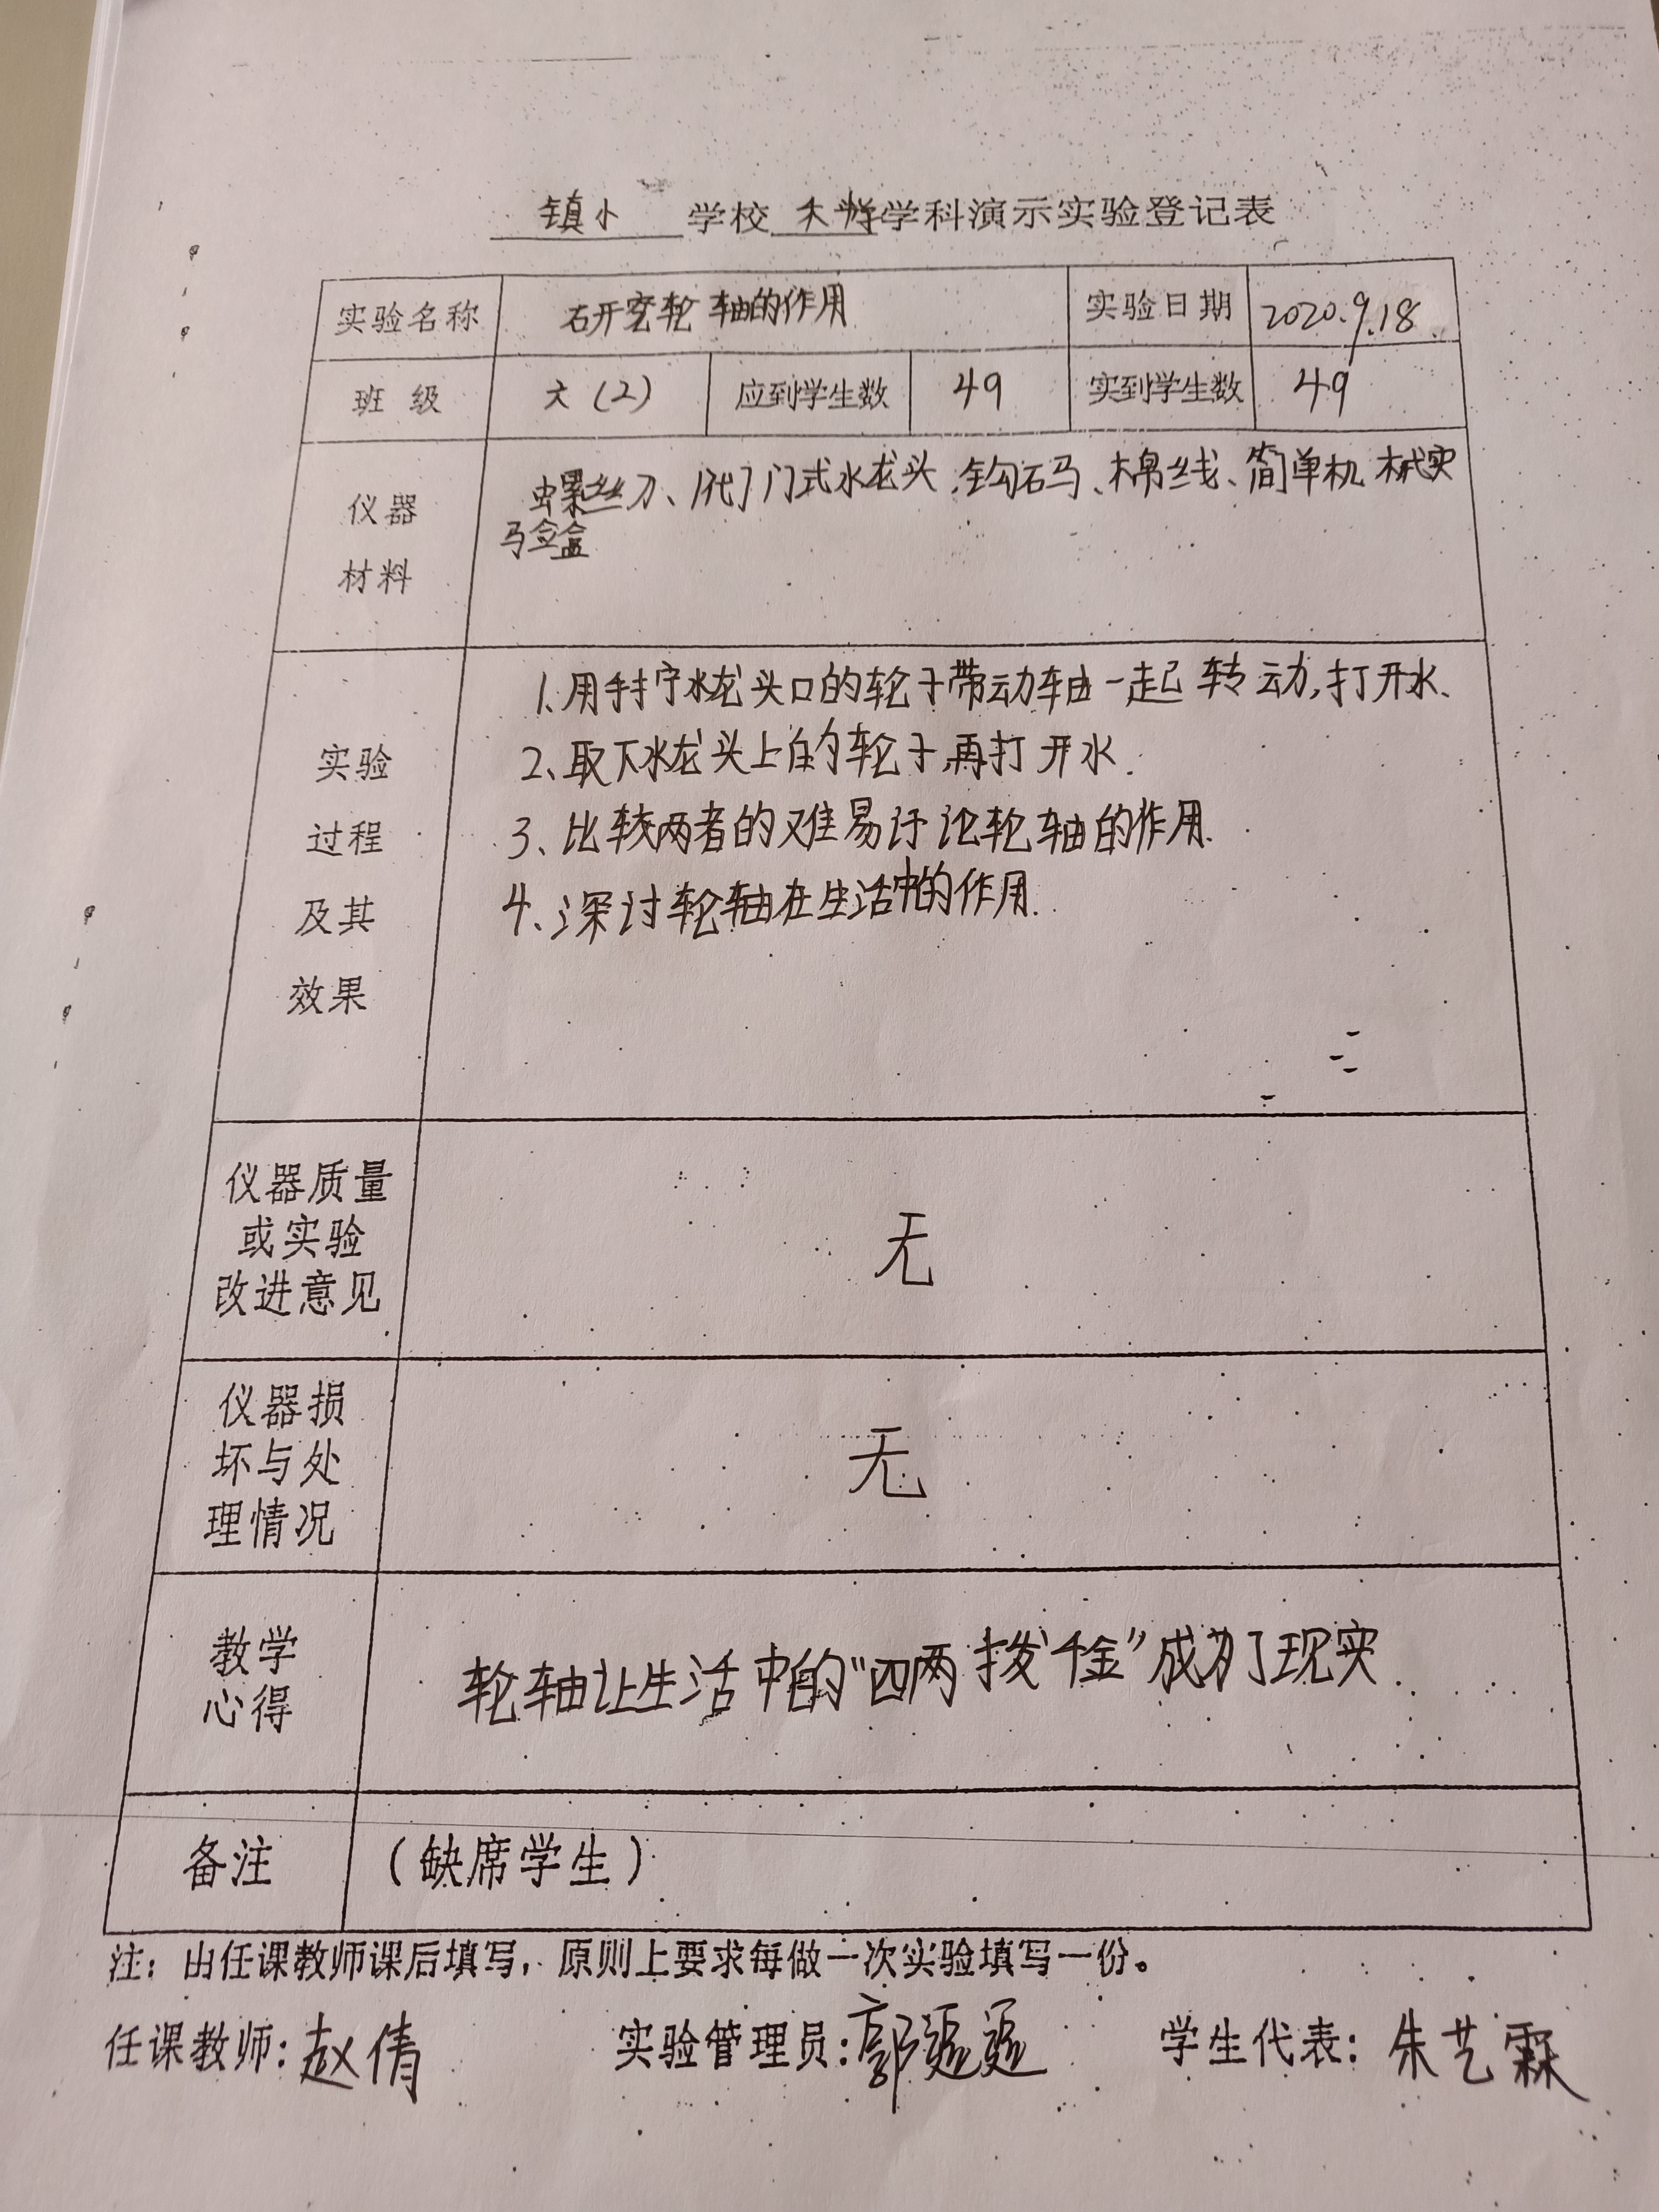 镇小 学校 科学 学科演示实验登记表
实验名称 研究轮轴的作用 实验日期 2020.9.18
班 级 六(2) 应到学生数 49 实到学生数 49
仪器
材料
螺丝刀、阀门式水龙头、钩码、棉线、简单机械实
验盒
实验
过程
及其
效果
1.用手拧水龙头口的轮子带动轴一起转动,打开水、
2、取下水龙头上的轮子,再打开水.
3、比较两者的难易讨论轮轴的作用.
4、探讨轮轴在生活中的作用.
仪器质量
或实验
改进意见
无
仪器损
坏与处
理情况
无
教学
心得
轮轴让生活中的“四两拨千金”成为了现实.
备注 (缺席学生)
注:由任课教师课后填写,原则上要求每做一次实验填写一份。
任课教师:赵倩 实验管理员:郭 学生代表:朱艺霖